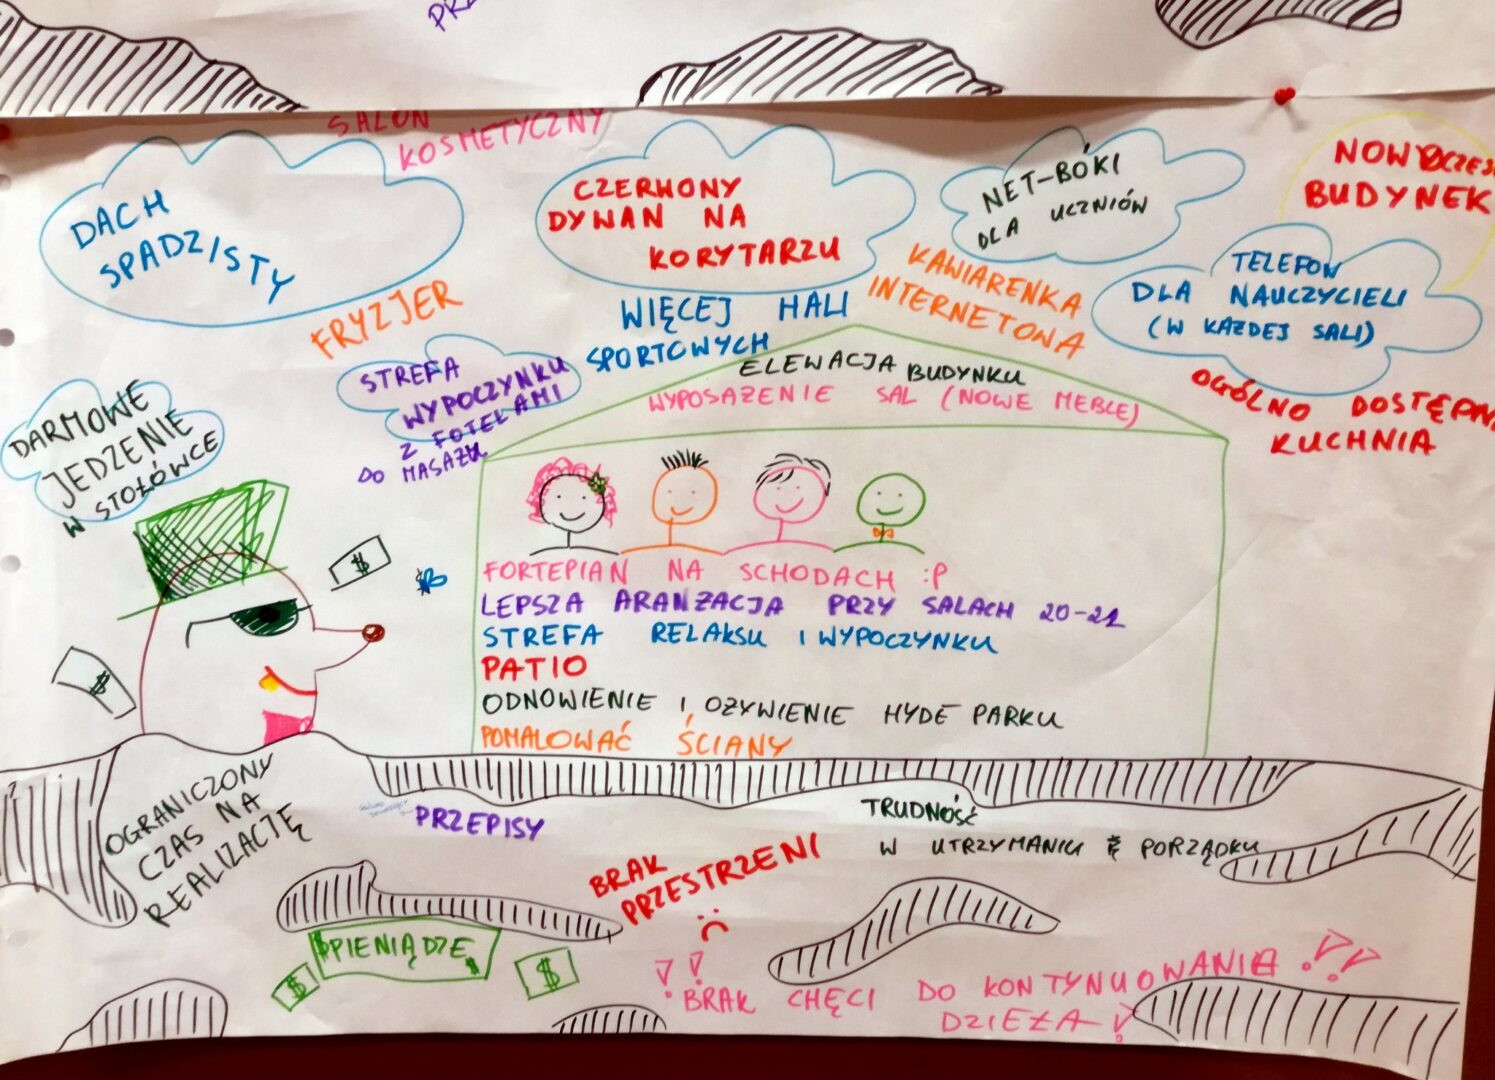 SALON
KOSMETYCZNY
DACH
SPADZISTY
FRYZJER
CZERWONY
DYWAN NA
KORYTARZU
NET-BÓKI
DLA UCZNIÓW
BUDYNEK
TELEFON
DLA NAUCZYCIELI
(W KAZDEJ SALI)
KAWIARENKA
INTERNETOWA
WIĘCEJ HALI
SPORTOWYCH
OGÓLNO DOSTĘPNA
KUCHNIA
STREFA
WYPOCZYNKU
Z FOTELAMI
DO MASAŻU
DARMOWE
JEDZENIE
W STOŁÓWCE
ELEWACJA BUDYNKU
WYPOSAŻENIE SAL (NOWE MEBLE)
$
$
FORTEPIAN NA SCHODACH :P
LEPSZA ARANŻACJA PRZY SALACH 20-21
STREFA RELAKSU I WYPOCZYNKU
PATIO
ODNOWIENIE I OŻYWIENIE HYDE PARKU
POMALOWAĆ ŚCIANY
OGRANICZONY
CZAS NA
REALIZACJĘ
PRZEPISY
TRUDNOŚĆ
W UTRZYMANIU PORZĄDKU
BRAK
PRZESTRZENI
$PIENIĄDZE$
$
$
BRAK CHĘCI DO KONTYNUOWANIA !!!
DZIEŁA !